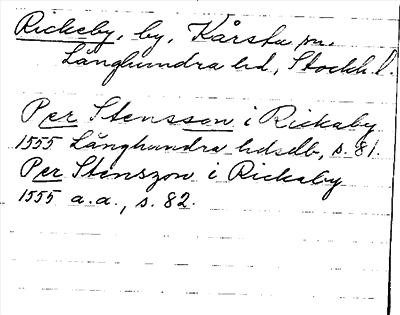 Rickeby, by, Kårsta sn.
Långhundra hd, Stockh. l.
Per Stensson i Rickaby
1555 Långhundra hdsdb, s. 81.
Per Stenszon i Rickaby
1555 a.a., s. 82.